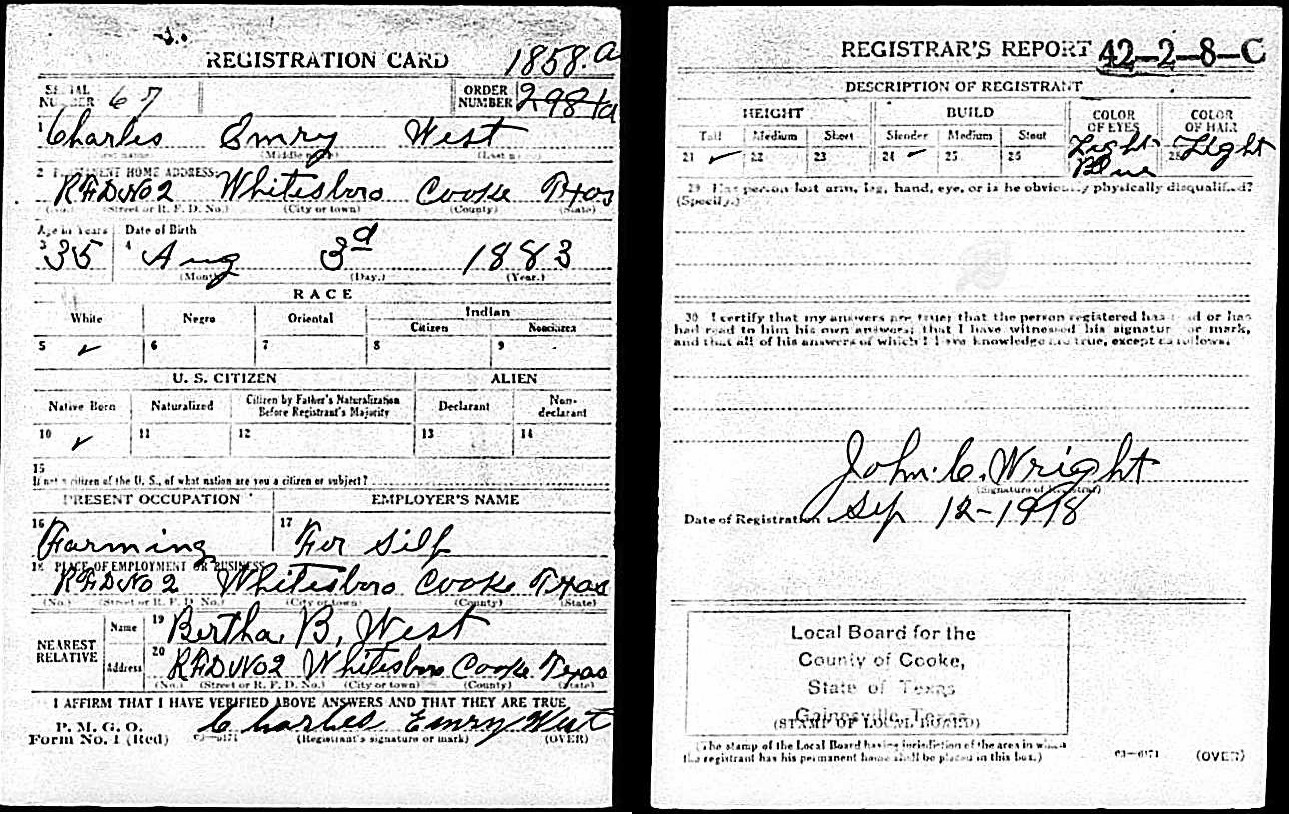 REGISTRATION CARD
1858. a
SERIAL NUMBER 67
ORDER NUMBER 2984a
1 Charles Emry West
(First name) (Middle name) (Last name)
2 PERMANENT HOME ADDRESS:
RFD No 2 Whitesboro Cooke Texas
(No.) (Street or R. F. D. No.) (City or town) (County) (State)
Age in Years Date of Birth
3 35 4 Aug 3d 1883
(Month.) (Day.) (Year.)
RACE
White Negro Oriental Indian
Citizen Noncitizen
5 ✓ 6 7 8 9
U. S. CITIZEN ALIEN
Native Born Naturalized Citizen by Father's Naturalization Before Registrant's Majority Declarant Non-declarant
10 ✓ 11 12 13 14
15
If not a citizen of the U. S., of what nation are you a citizen or subject?
PRESENT OCCUPATION EMPLOYER'S NAME
16 Farming 17 For Self
18 PLACE OF EMPLOYMENT OR BUSINESS:
RFD No 2 Whitesboro Cooke Texas
(No.) (Street or R. F. D. No.) (City or town) (County) (State)
NEAREST RELATIVE
Name 19 Bertha B. West
Address 20 RFD No 2 Whitesboro Cooke Texas
(No.) (Street or R. F. D. No.) (City or town) (County) (State)
I AFFIRM THAT I HAVE VERIFIED ABOVE ANSWERS AND THAT THEY ARE TRUE
P. M. G. O.
Form No. 1 (Red) 03-6171 Charles Emry West
(Registrant's signature or mark) (OVER)
REGISTRAR'S REPORT 42-2-8-C
DESCRIPTION OF REGISTRANT
HEIGHT BUILD COLOR OF EYES COLOR OF HAIR
Tall Medium Short Slender Medium Stout
21 ✓ 22 23 24 ✓ 25 26 Light Blue 28 Light
29 Has person lost arm, leg, hand, eye, or is he obviously physically disqualified?
(Specify.)
30 I certify that my answers are true; that the person registered has read or has
had read to him his own answers; that I have witnessed his signature or mark,
and that all of his answers of which I have knowledge are true, except as follows:
John C. Wright
(Signature of Registrar)
Date of Registration Sep 12-1918
Local Board for the
County of Cooke,
State of Texas
Gainesville, Texas
(STAMP OF LOCAL BOARD)
(The stamp of the Local Board having jurisdiction of the area in which
the registrant has his permanent home shall be placed in this box.)
03-6171 (OVER)